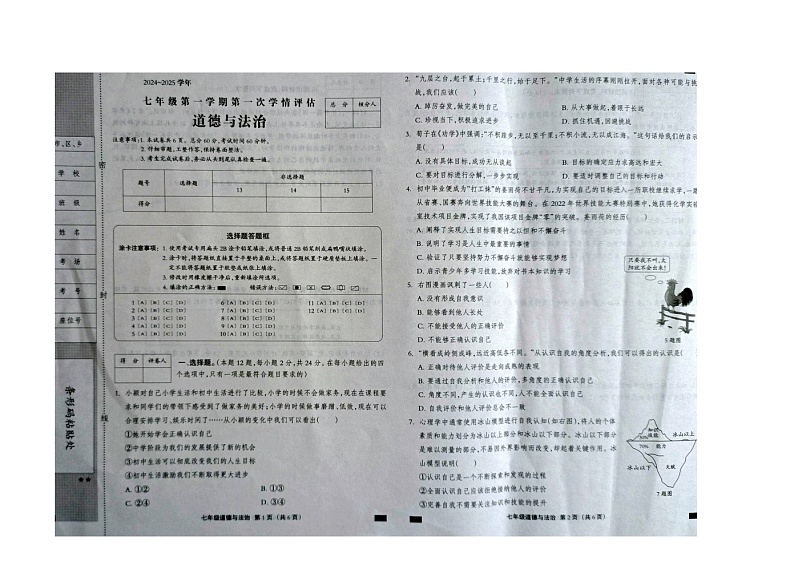 2024~2025学年
七年级第一学期第一次学情评估
道德与法治
总 分 核分人
注意事项:1. 本试卷共6页。总分60分,考试时间60分钟。
2. 仔细审题,工整作答,保持卷面整洁。
3. 考生完成试卷后,务必从头到尾认真检查一遍。
题号 选择题 非选择题
13 14 15
得分
选择题答题框
涂卡注意事项:1. 使用考试专用扁头2B涂卡铅笔填涂,或将普通2B铅笔削成扁鸭嘴状填涂。
2. 涂卡时,将答题纸直接置于平整的桌面上,或将答题纸置于硬质垫板上填涂。一
定不能将答题纸置于软垫或纸层上填涂。
3. 修改时用橡皮擦干净后,重新填涂所选项。
4. 填涂的正确方法: 错误方法:
1 [A] [B] [C] [D] 6 [A] [B] [C] [D] 11 [A] [B] [C] [D]
2 [A] [B] [C] [D] 7 [A] [B] [C] [D] 12 [A] [B] [C] [D]
3 [A] [B] [C] [D] 8 [A] [B] [C] [D]
4 [A] [B] [C] [D] 9 [A] [B] [C] [D]
5 [A] [B] [C] [D] 10 [A] [B] [C] [D]
得 分 评卷人
一、选择题。(本题12题,每小题2分,共24分。在每小题给出的四
个选项中,只有一项是最符合题目要求的)
1. 小颖对自己小学生活和初中生活进行了比较,小学的时候不会做家务,现在在课程要
求和同学们的带领下感受到了做家务的美好;小学的时候做事磨蹭、低效,现在可以
合理安排学习、娱乐时间了……从小颖的变化中我们可以看出( )
①她开始学会正确认识自己
②中学阶段为我们的发展提供了新的机会
③初中生活可以彻底改变我们的人生目标
④初中生活激励我们不断取得更大进步
A. ①② B. ①③
C. ②④ D. ③④
七年级道德与法治 第1页(共6页)
市、区、乡
学 校
班 级
姓 名
考 场
考 号
座位号
条形码粘贴处
密
封
线
2. “九层之台,起于累土;千里之行,始于足下。”中学生活的序幕刚刚拉开,面对各种可能与挑
战,我们应该( )
A. 踔厉奋发,做完美的自己 B. 从大事做起,着眼于长远
C. 珍视当下,积极追求进步 D. 抓住机遇,回避挑战
3. 荀子在《劝学》中强调:“不积跬步,无以至千里;不积小流,无以成江海。”这句话给我们的启示
是( )
A. 没有具体目标,成功无从谈起 B. 目标的确定应力求高远和宏大
C. 要对目标进行分解,一步步实现 D. 要适时调整自己的目标和行动
4. 初中毕业便成为“打工妹”的姜雨荷不甘平凡,为实现自己的目标进入一所职校继续求学,一路
从省赛、国赛奔向世界技能大赛的舞台。在2022年世界技能大赛特别赛中,她获得化学实验
室技术项目金牌,实现了我国该项目金牌“零”的突破。姜雨荷的经历( )
A. 阐释了实现人生目标需要持之以恒和不懈奋斗
B. 说明了学习是人生中最重要的事情
C. 验证了只要坚持努力不懈奋斗就能够实现梦想
D. 启示青少年多学习技能,放弃对书本知识的学习
5. 右图漫画讽刺了一些人( )
A. 没有形成自我意识
B. 能够看到他人长处
C. 不能接受他人的正确评价
D. 不能够正确认识自己
只要我不叫,太
阳就不会出来!
5题图
6. “横看成岭侧成峰,远近高低各不同。”从认识自我的角度分析,我们可以得出的认识是( )
A. 正确对待他人评价是走向成熟的表现
B. 要通过自我分析和他人的评价,多角度的正确认识自己
C. 角度不同,产生的认识也不同,人不能全面认识自己
D. 自我评价和他人评价总会不一致
7. 心理学中通常使用冰山模型进行自我认知(如右图),将人的个体
素质和能力划分为冰山以上部分和冰山以下部分。冰山以下部分
是难以测量的部分,不易因外界影响而改变,却起着关键作用。冰
山模型说明( )
①认识自己是一个不断探索和发现的过程
②全面认识自己应该拒绝接纳他人的评价
③完善自我不需要关注知识和技能的提升
知识
技能
能力
冰山以上
冰山以下
天赋
7题图
七年级道德与法治 第2页(共6页)